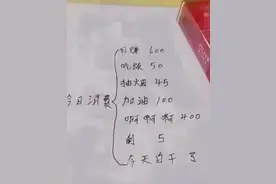 今日消费
日赚 600
吃饭 50
抽烟 45
加油 100
啊啊啊 400
剩 5
今天白干了